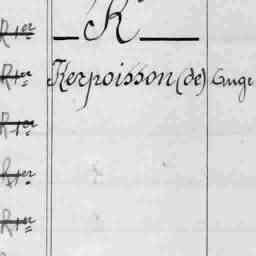 R 1er
K
R 1er Kerpoisson (de) Ange
R 1er
R 1er
R 1er